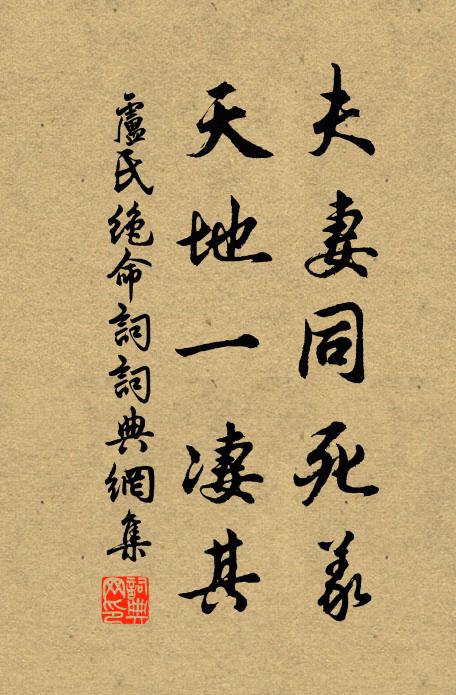 夫妻同死義
天地一凄其
盧氏絶命詞詞典網集
詞典网印